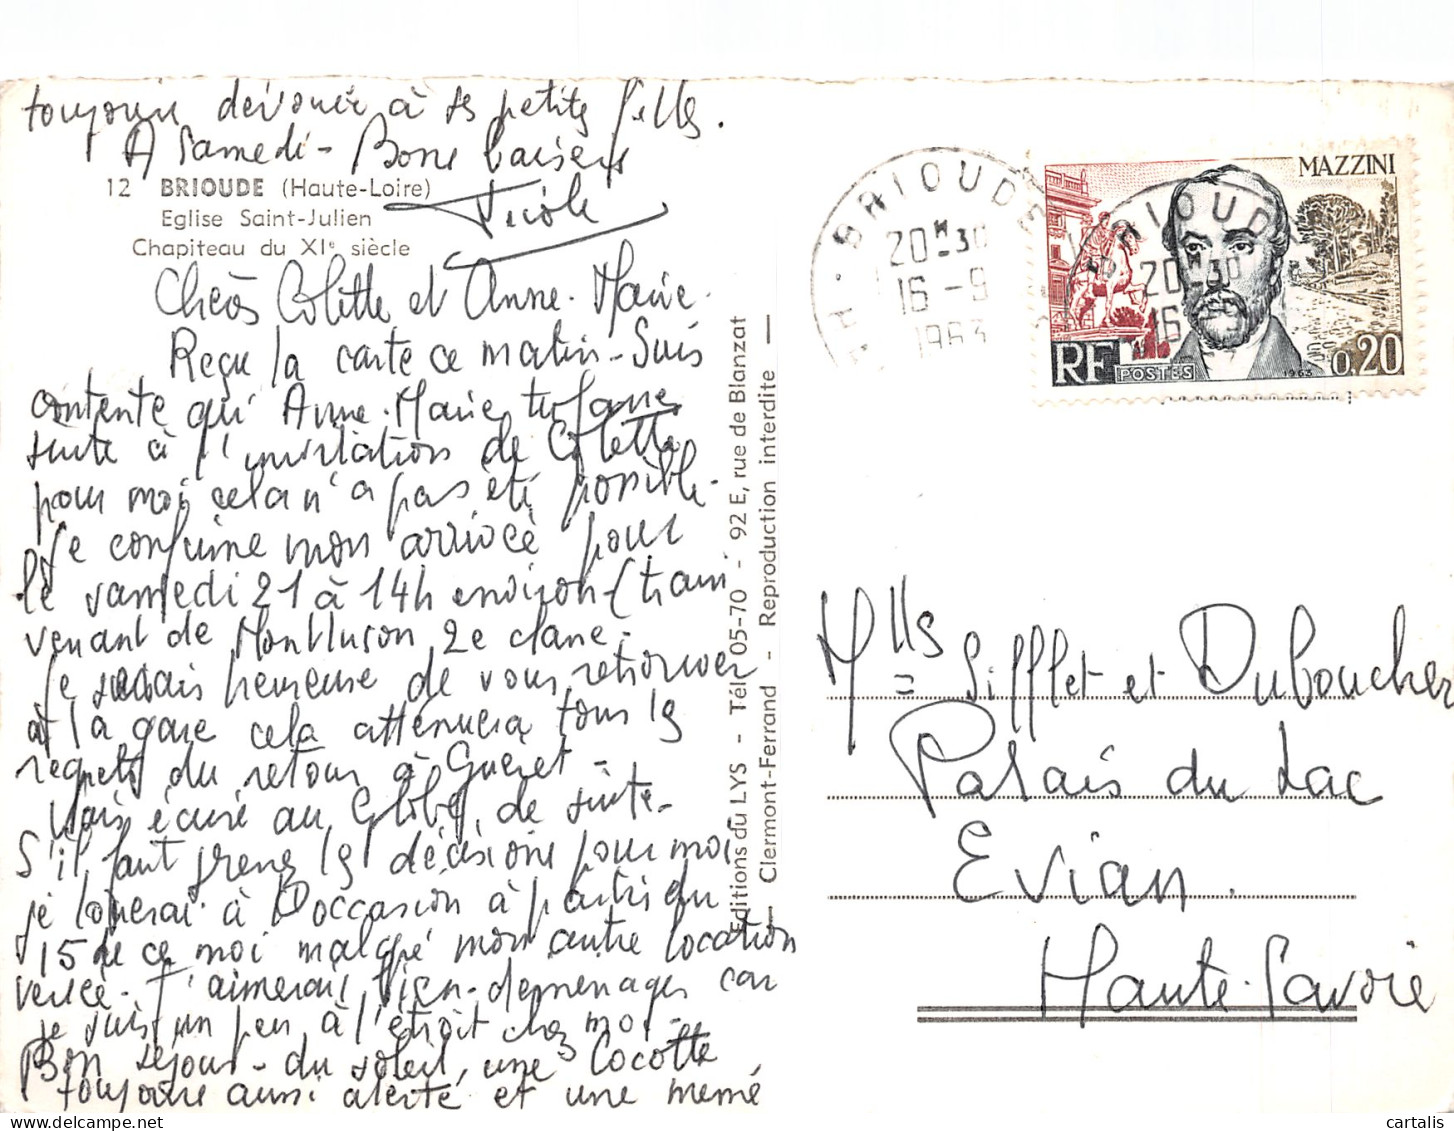 toujours dévouée à ses petites filles.
A Samedi - Bons baisers
Nicole
12 BRIOUDE (Haute-Loire)
Eglise Saint-Julien
Chapiteau du XIe siècle
Chères Colette et Anne-Marie.
Reçu la carte ce matin - Suis
contente qu'Anne-Marie
suite à l'invitation de Colette
pour moi cela n'a pas été possible -
Je confirme mon arrivée pour
le samedi 21 à 14h environ (train
venant de Montluson 2e classe.
Je serais heureuse de vous retrouver
à la gare cela attenuera tous les
regrets du retour à Guéret -
Vais écrire au Globe, de suite -
S'il faut prenez les décisions pour moi,
je louerai à l'occasion à partir du
15 de ce moi malgré mon autre location
versée - J'aimerais bien déménager car
je suis un peu à l'étroit chez moi -
Bon séjour - du soleil, une Cocotte
toujours aussi alerte et une mémé
Editions du LYS - Tél. 05-70 - 92 E, rue de Blanzat
Clermont-Ferrand - Reproduction interdite
BRIOUDE
20H30
16-9
1963
BRIOUDE
20H30
16
MAZZINI
RF
POSTES
1963
0,20
Mlles Sifflet et Duboucher
Palais du Lac
Evian.
Haute-Savoie
www.cartalis.com